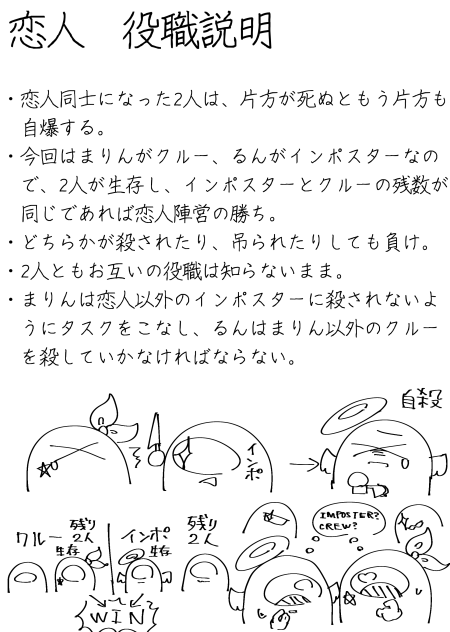 恋人　役職説明
・恋人同士になった2人は、片方が死ぬともう片方も
自爆する。
・今回はまりんがクルー、るんがインポスターなの
で、2人が生存し、インポスターとクルーの残数が
同じであれば恋人陣営の勝ち。
・どちらかが殺されたり、吊られたりしても負け。
・2人ともお互いの役職は知らないまま。
・まりんは恋人以外のインポスターに殺されないよ
うにタスクをこなし、るんはまりん以外のクルー
を殺していかなければならない。
自殺
インポ
クルー
残り
2人
生存
インポ
生存
残り
2人
IMPOSTER?
CREW?
WIN